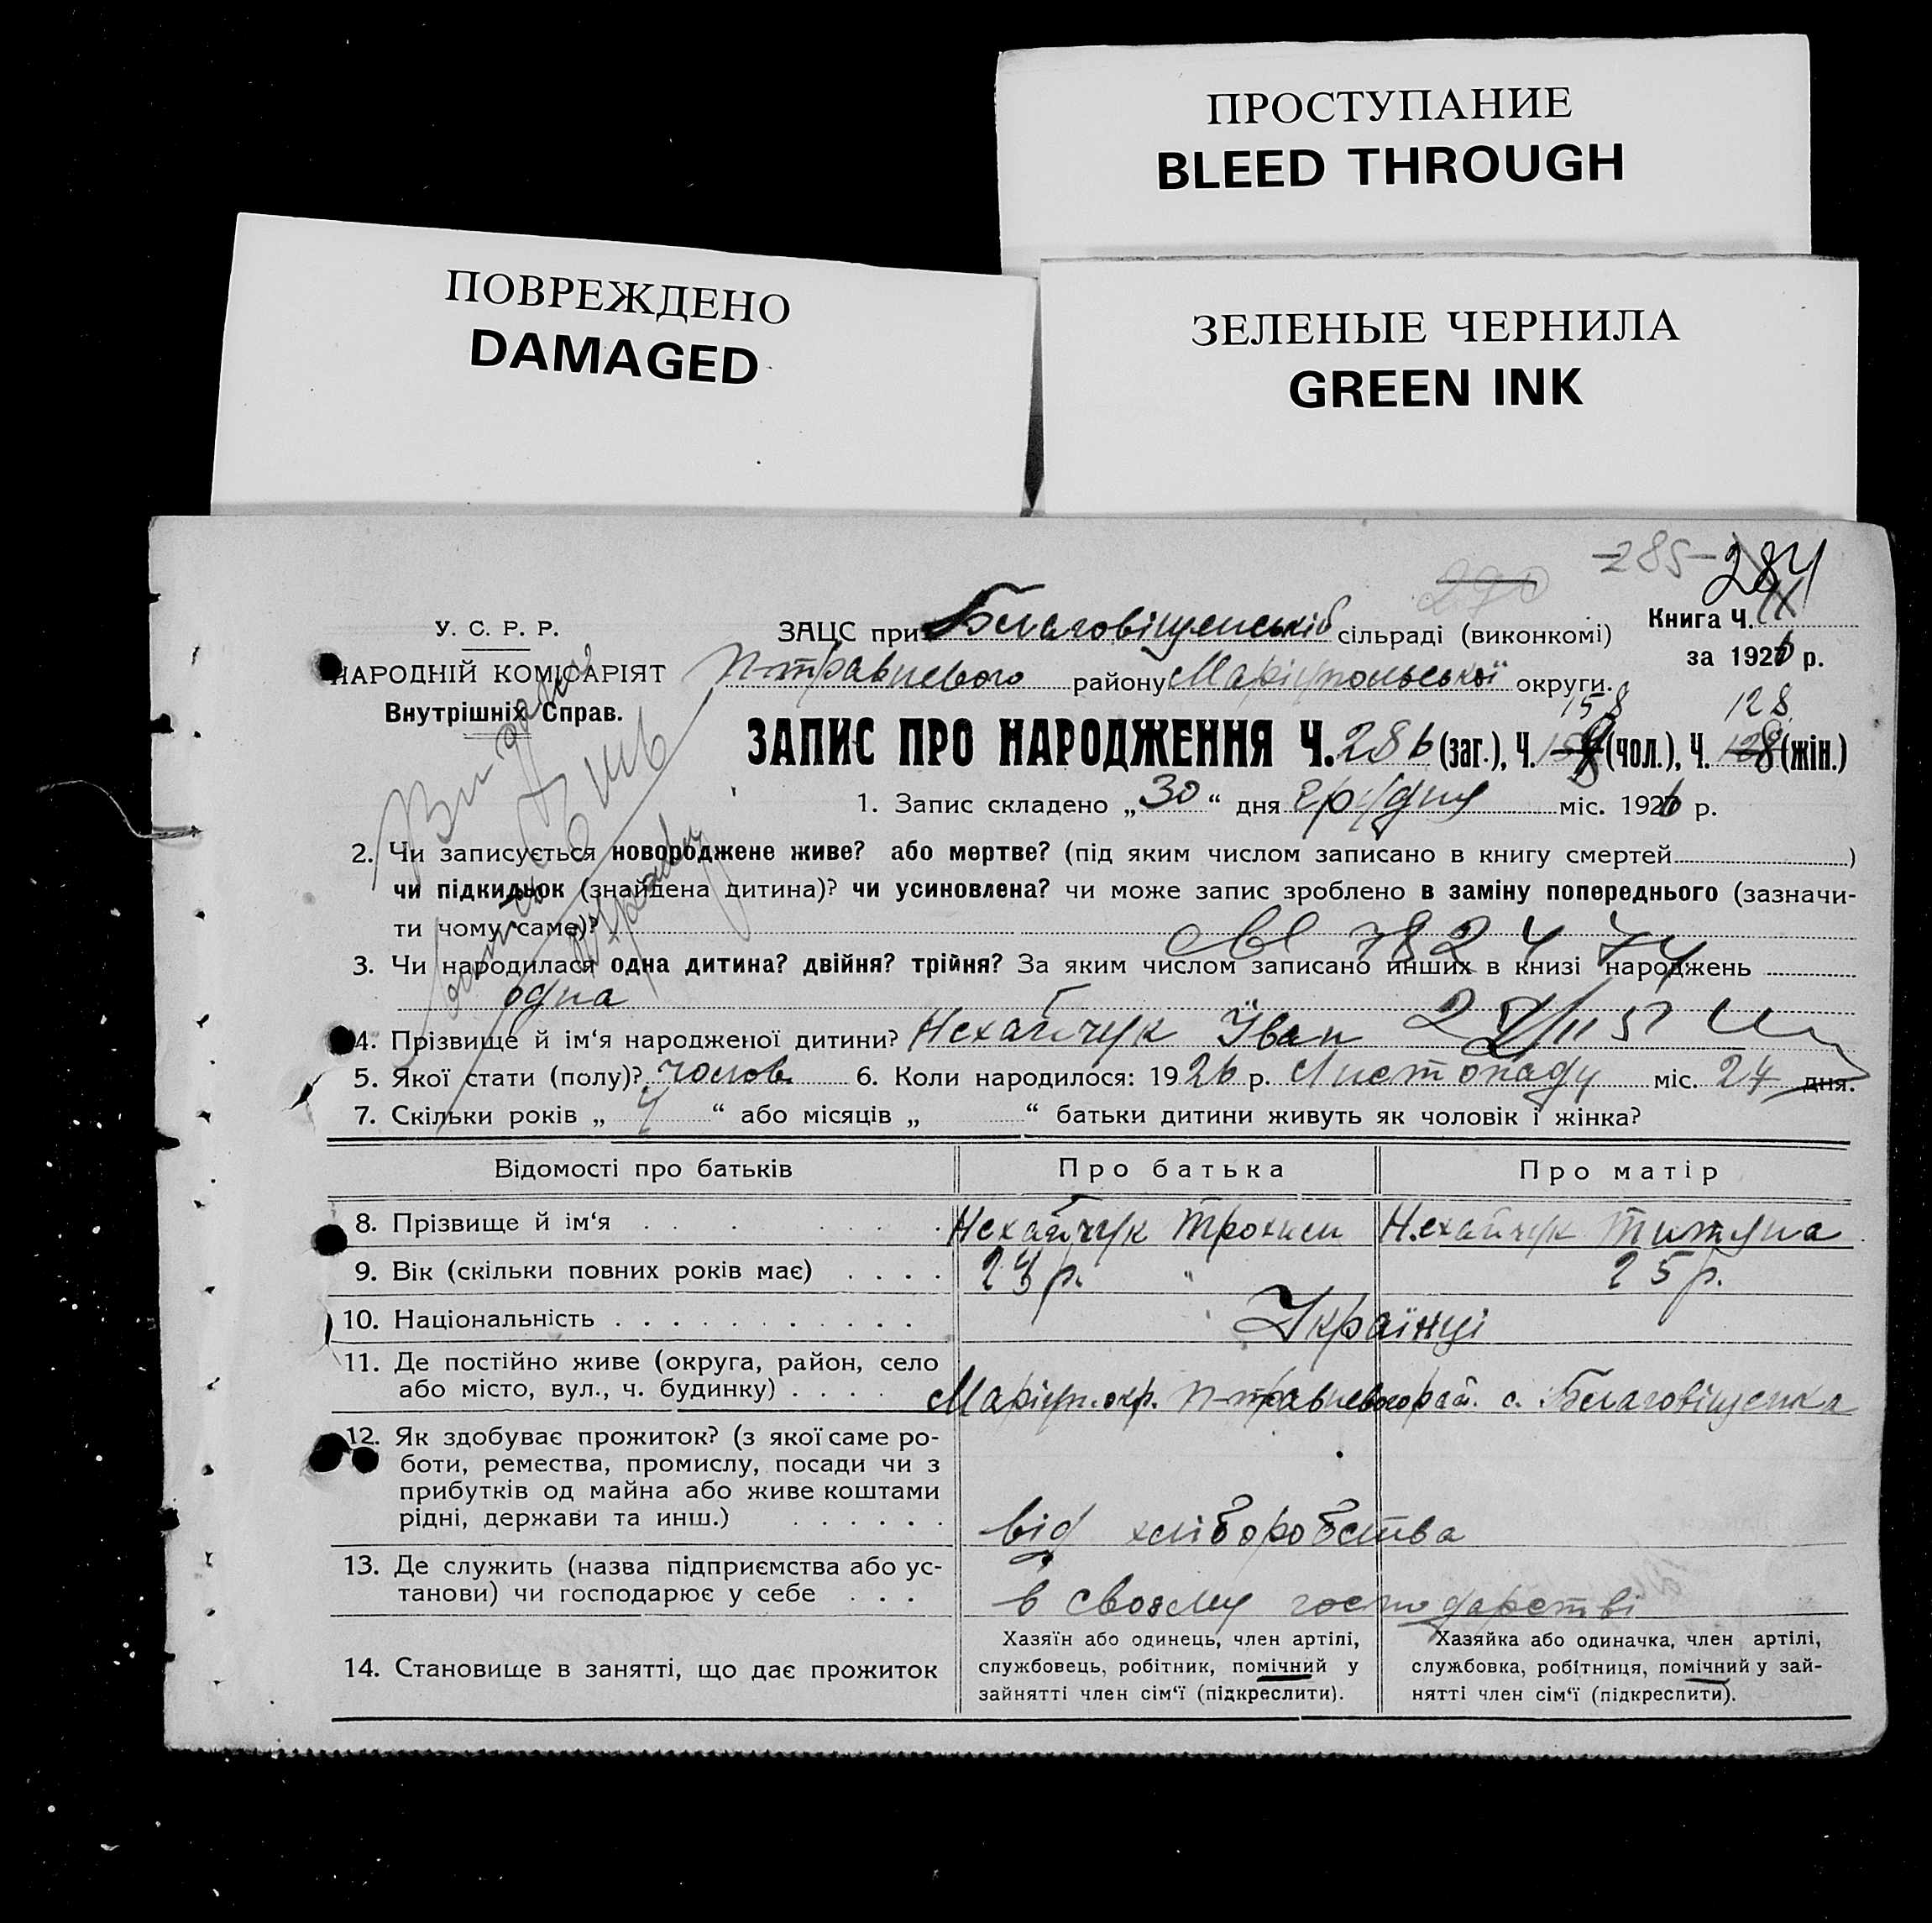 ПРОСТУПАНИЕ
BLEED THROUGH
ПОВРЕЖДЕНО
DAMAGED
ЗЕЛЕНЫЕ ЧЕРНИЛА
GREEN INK
-285- 284
290
У. С. Р. Р.
НАРОДНІЙ КОМІСАРІЯТ
Внутрішніх Справ.
ЗАЦС при Благовіщенській сільраді (виконкомі)
П-травневого району Маріупольської округи.
Книга Ч. 11
за 1926 р.
158 128
ЗАПИС ПРО НАРОДЖЕННЯ Ч. 286 (заг.), Ч. 158 (чол.), Ч. 128 (жін.)
1. Запис складено „30“ дня грудня міс. 1926 р.
2. Чи записується новороджене живе? або мертве? (під яким числом записано в книгу смертей)
чи підкидьок (знайдена дитина)? чи усиновлена? чи може запис зроблено в заміну попереднього (зазначи-
ти чому саме)?
3. Чи народилася одна дитина? двійня? трійня? За яким числом записано инших в книзі народжень
одна
4. Прізвище й ім‘я народженої дитини? Нехайчук Іван
5. Якої стати (полу)? чолов. 6. Коли народилося: 1926 р. Листопаду міс. 24 дня.
7. Скільки років „4“ або місяців „ “ батьки дитини живуть як чоловік і жінка?
Відомості про батьків Про батька Про матір
8. Прізвище й ім‘я Нехайчук Трохим Нехайчук
9. Вік (скільки повних років має) р. 25 р.
10. Національність Українці
11. Де постійно живе (округа, район, село
або місто, вул., ч. будинку) Маріуп. окр. П-травневого рай. с. Благовіщенка
12. Як здобуває прожиток? (з якої саме ро-
боти, ремества, промислу, посади чи з
прибутків од майна або живе коштами
рідні, держави та инш.) від хліборобства
13. Де служить (назва підприємства або ус-
танови) чи господарює у себе в своєму господарстві
14. Становище в занятті, що дає прожиток
Хазяїн або одинець, член артілі,
службовець, робітник, помічний у
зайнятті член сім‘ї (підкреслити).
Хазяйка або одиначка, член артілі,
службовка, робітниця, помічний у зай-
нятті член сім‘ї (підкреслити).